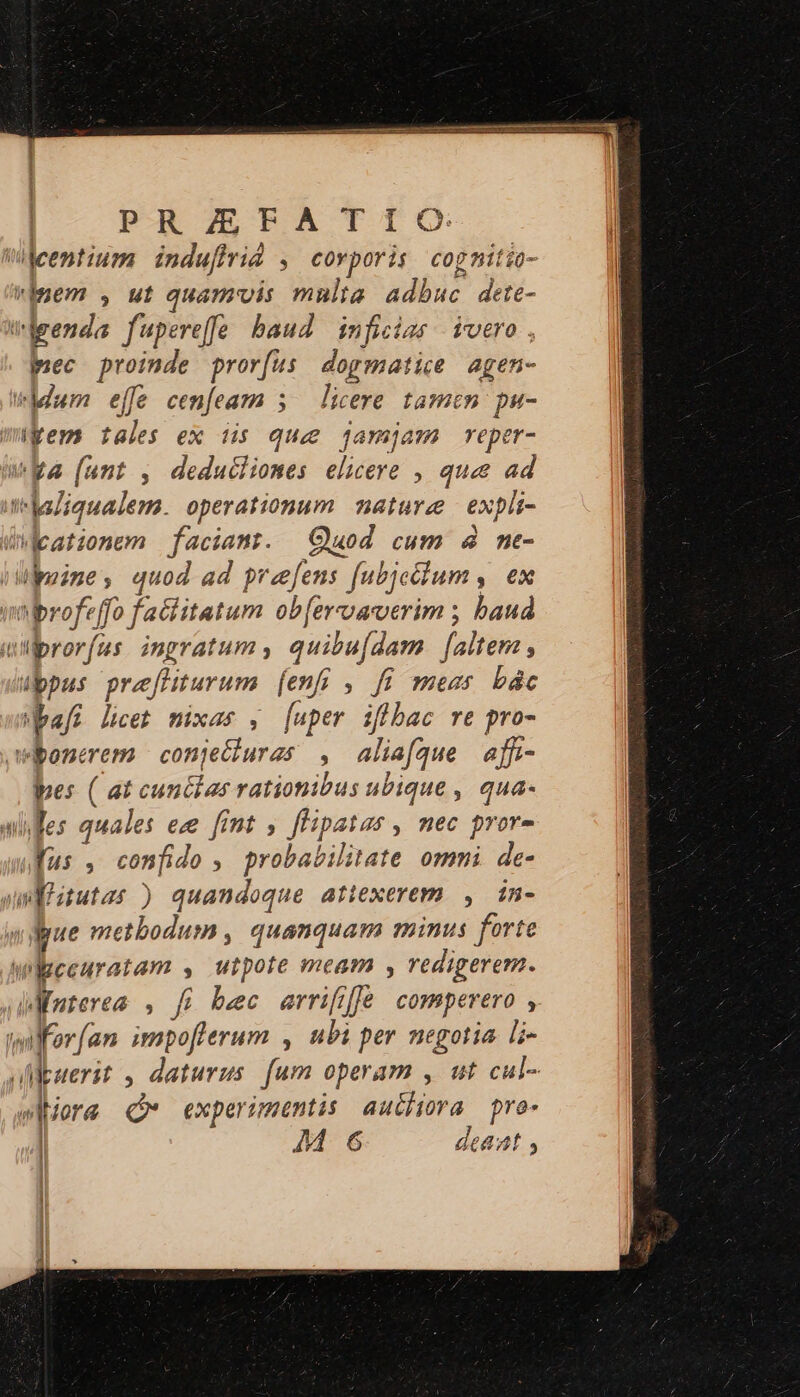 PRÆFATIO.
centium industriâ , corporis cognitio-
nem , ut quamvis multa adhuc dete-
genda superesse haud inficias ivero .
nec proinde prorsus dogmatice agen-
dum esse censeam ; licere tamen pu-
tem tales ex iis quæ jamjam reper-
ta sunt , deductiones elicere , quæ ad
aliqualem operationum naturæ expli-
cationem faciant. Quod cum à ne-
mine , quod ad præsens subjectum , ex
professo factitatum observaverim ; haud
prorsus ingratum , quibusdam saltem ,
opus præstiturum sensi , si meas hâc
basi licet nixas , super isthac re pro-
ponerem conjecturas , aliasque affi-
nes ( at cunctas rationibus ubique , qua-
les quales eæ sint , stipatas , nec pror-
sus , confido , probabilitate omni de-
stitutas ) quandoque attexerem , in-
que methodum , quanquam minus forte
accuratam , utpote meam , redigerem.
Interea , si hæc arrisisse comperero ,
forsan imposterum , ubi per negotia li-
cuerit , daturus sum operam , ut cul-
tiora & experimentis auctiora pro-
M 6 deant ,